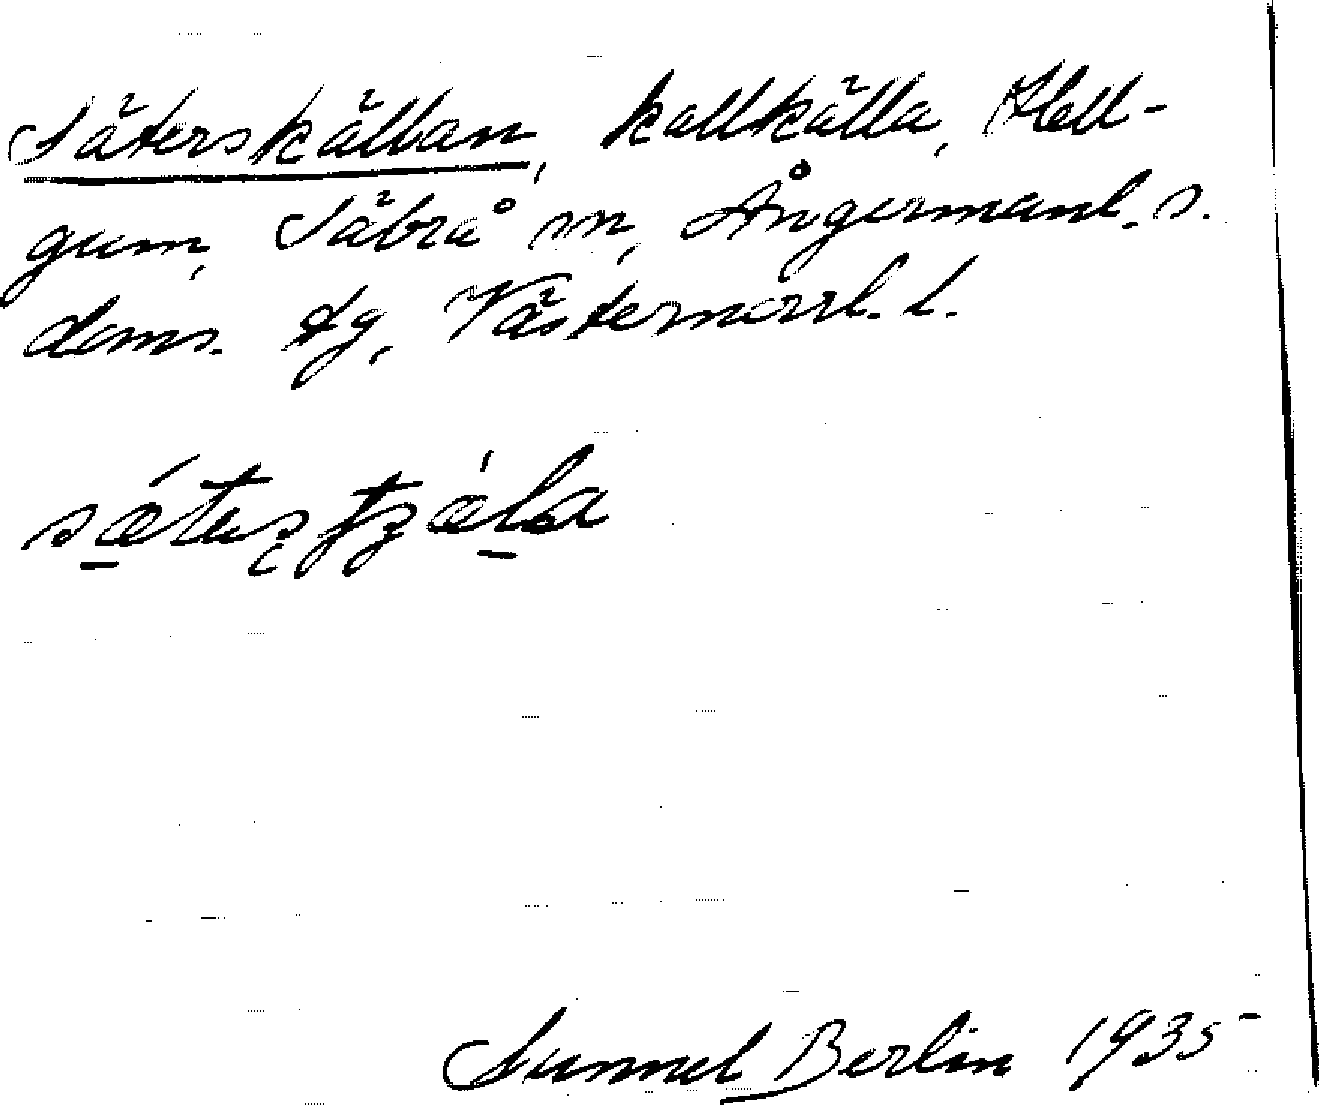 Säterskällan, kallkälla, Hell-
gum, Säbrå sn, Ångermanl. s.
doms. tg, Västernorrl. l.
Gunnel Berlin 1935